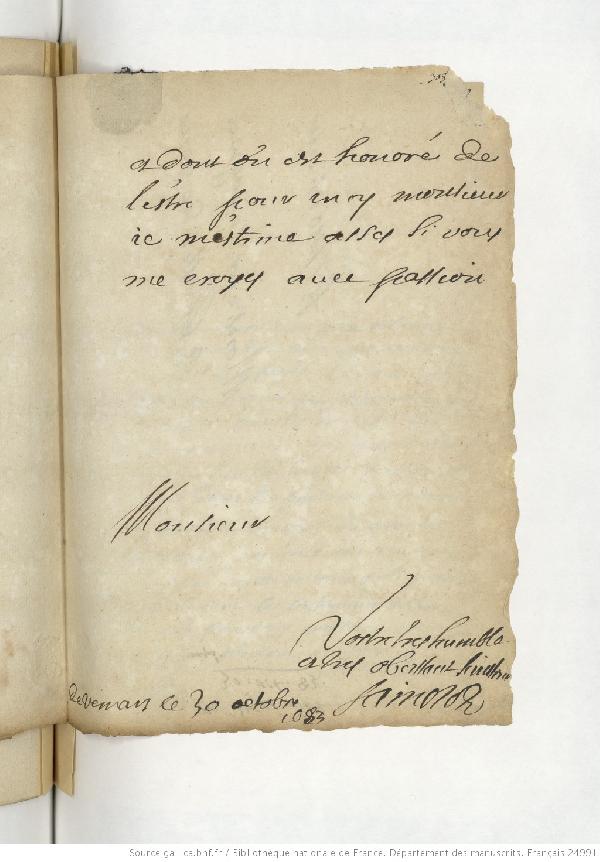 et dont on est honoré de
l'estre pour moy monsieur
ie m'estime assés si vous
me croyés avec passion
Monsieur
Vostre tres humble
et tres obeissant
le 30 octobre
1683
Source gallica.bnf.fr / Bibliothèque nationale de France. Département des manuscrits. Français 24991